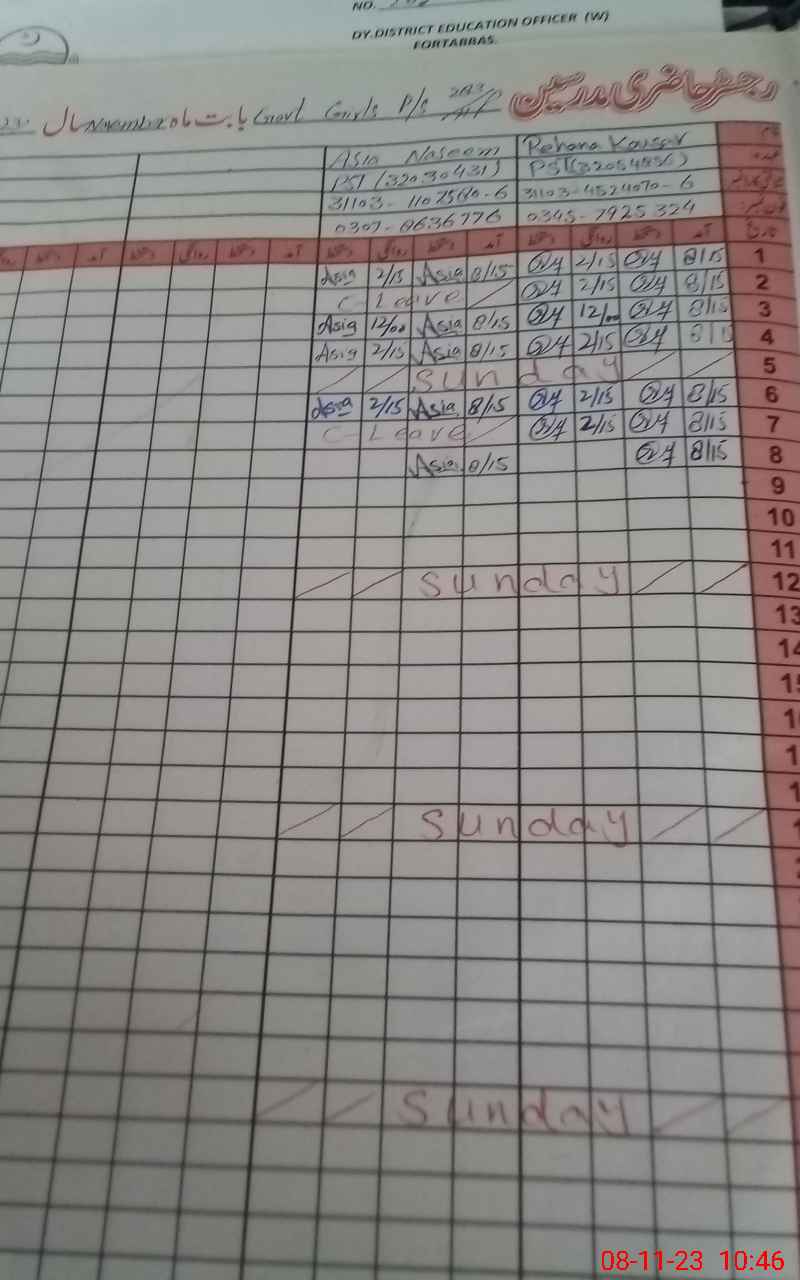 NO.
DY.DISTRICT EDUCATION OFFICER (W)
FORTABBAS.
رجسٹر حاضری مدرسین
Govt Girls P/S بابت ماہ November سال
Rehana Kousar Asia Naseem
PST PST (32030431)
31103-4524070-6
0345-7925324 0307-8636776
آمد دستخط روانگی دستخط آمد دستخط روانگی دستخط
1 8/15 2/15 8/15 Asia 2/15 Asia
2 8/15 2/15 C-Leave
3 8/15 12/00 8/15 Asia 12/00 Asia
4 2/15 8/15 Asia 2/15 Asia
5 Sunday
6 8/15 2/15 8/15 Asia 2/15 Asia
7 8/15 2/15 C-Leave
8 8/15 8/15 Asia
9
10
11
12 Sunday
13
Sunday
Sunday
08-11-23 10:46